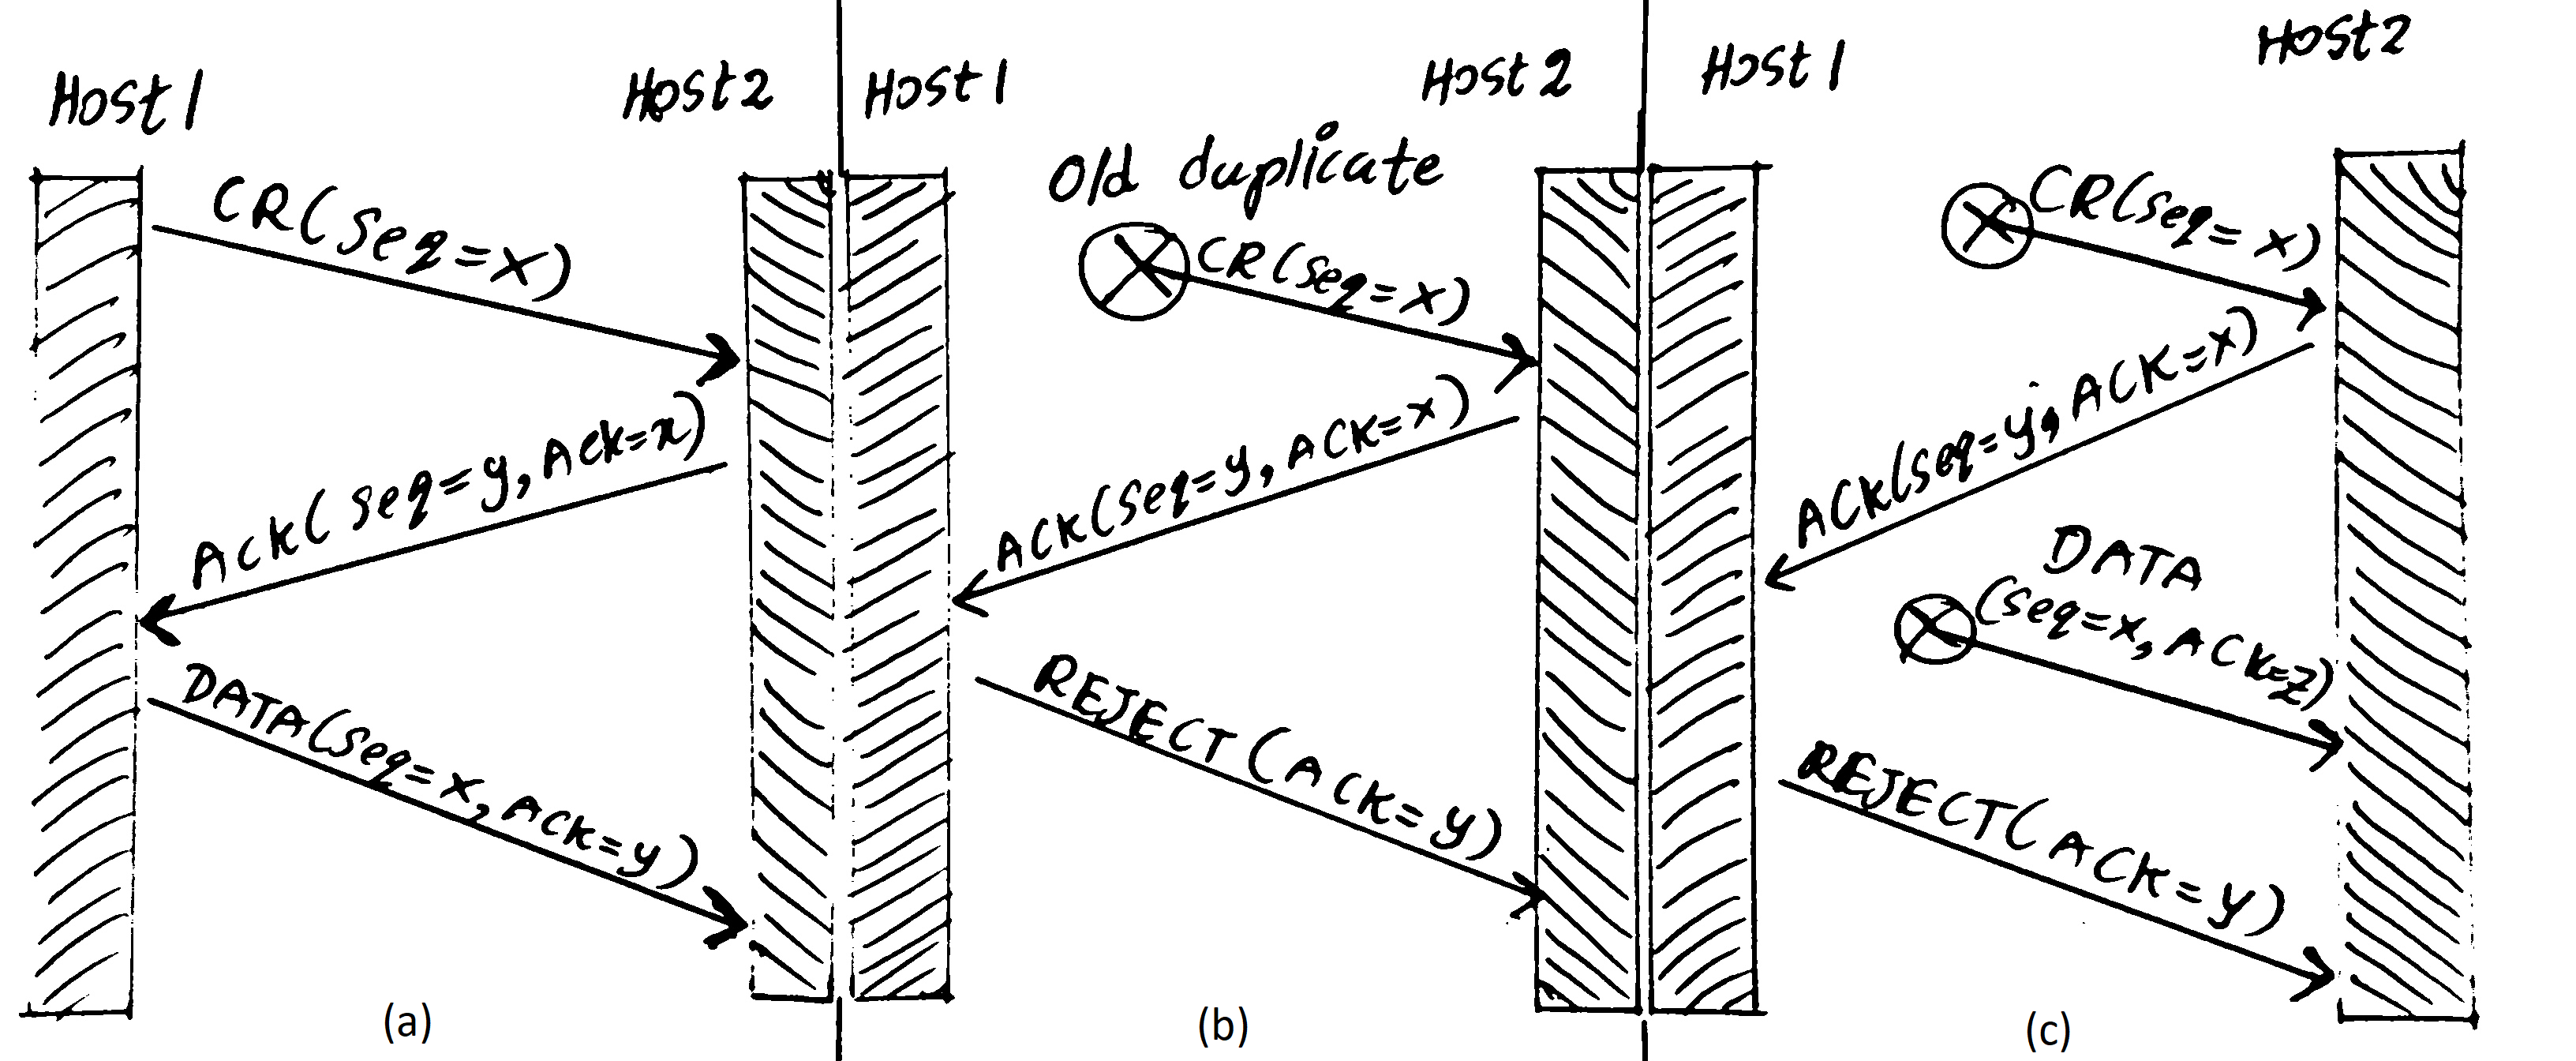 Host 1
Host 2
CR(Seq=x)
Ack(Seq=y,Ack=x)
DATA(Seq=x,Ack=y)
(a)
Host 1
Host 2
Old duplicate
CR(Seq=x)
ACK(Seq=y,ACK=x)
REJECT(ACK=y)
(b)
Host 1
Host2
CR(Seq=x)
ACK(Seq=y,ACK=x)
DATA
(Seq=x,ACK=z)
REJECT(ACK=y)
(c)